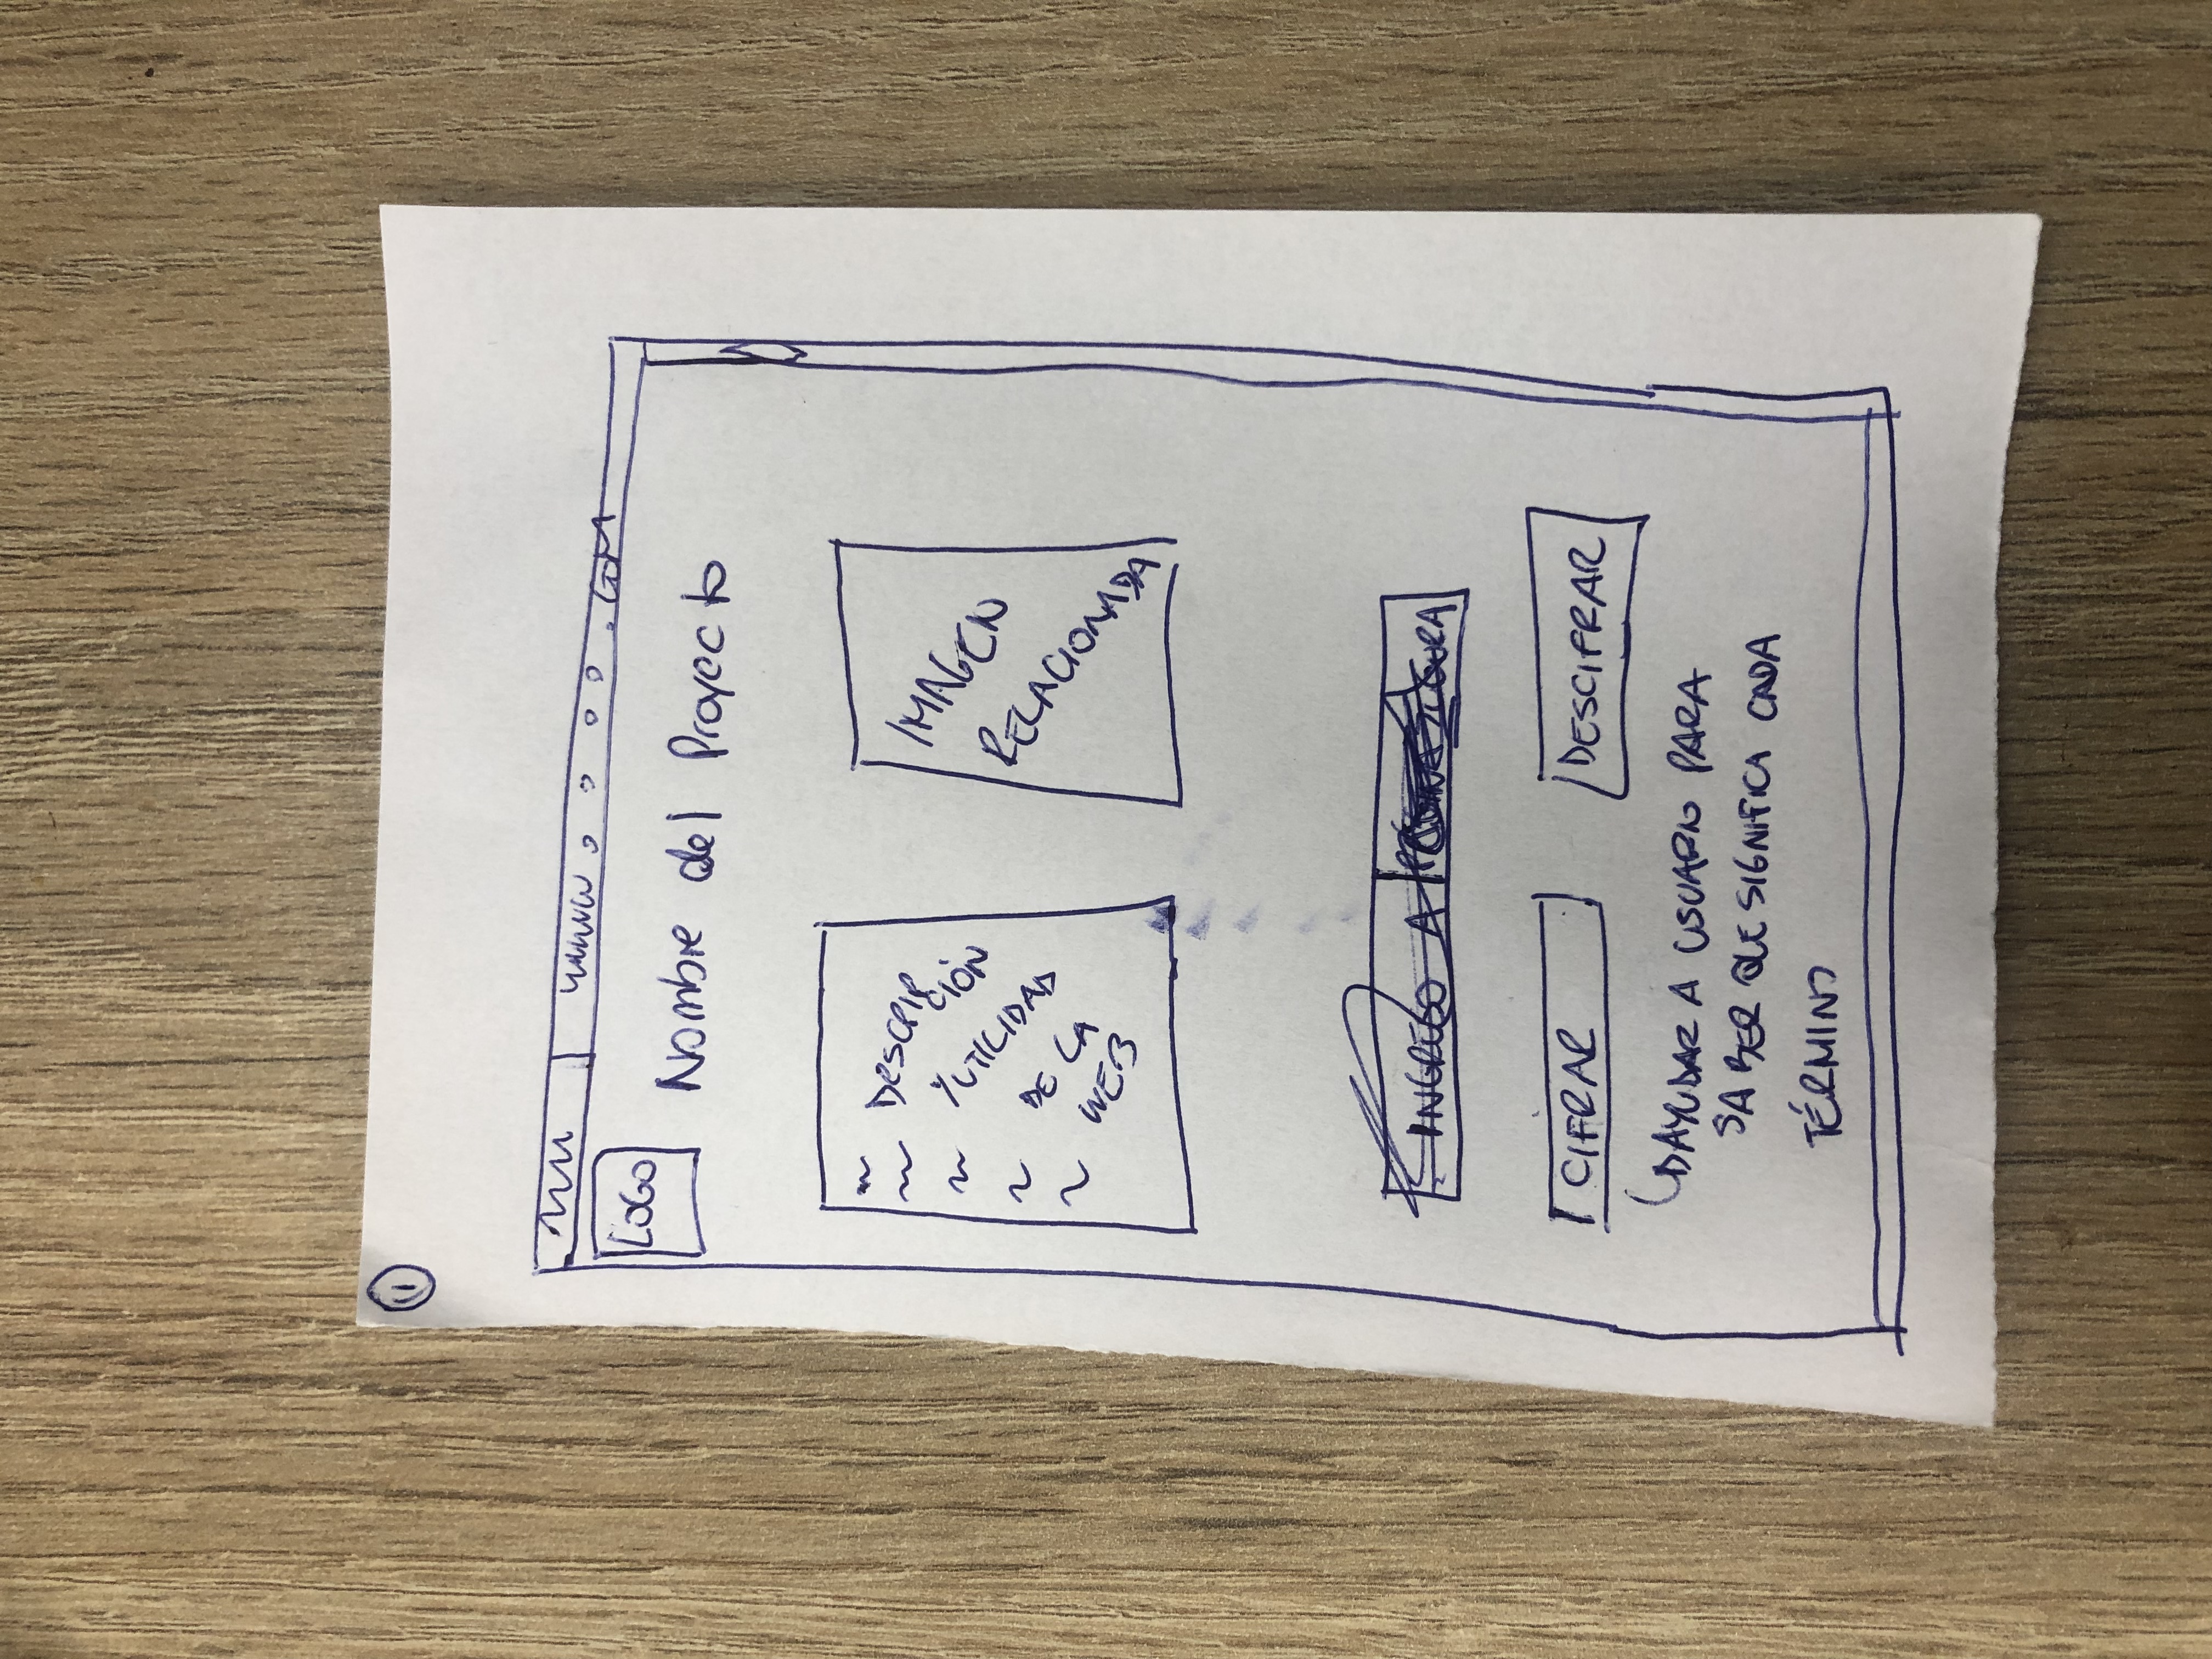 1
www . COM
LOGO
Nombre del Proyecto
DESCRIPCIÓN
Y UTILIDAD
DE LA
WEB
IMAGEN
RELACIONADA
INGRESO A
CIFRAR
DESCIFRAR
AYUDAR A USUARIO PARA
SABER QUE SIGNIFICA CADA
TÉRMINO